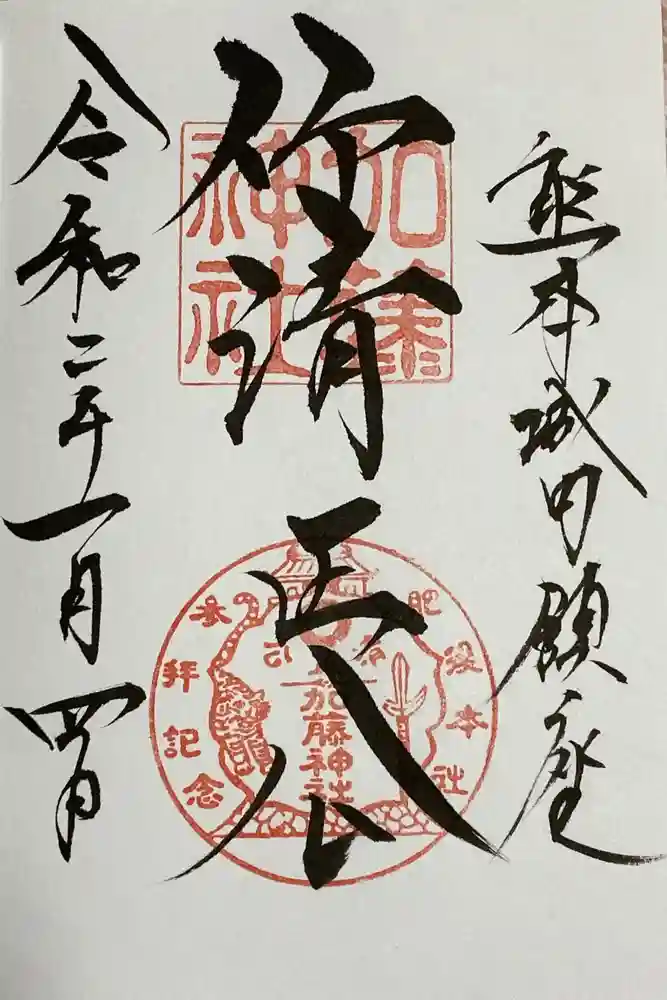 熊本城内鎮座
仰清正公
令和二年一月四日
加藤神社
肥後本社
加藤神社
参拝記念